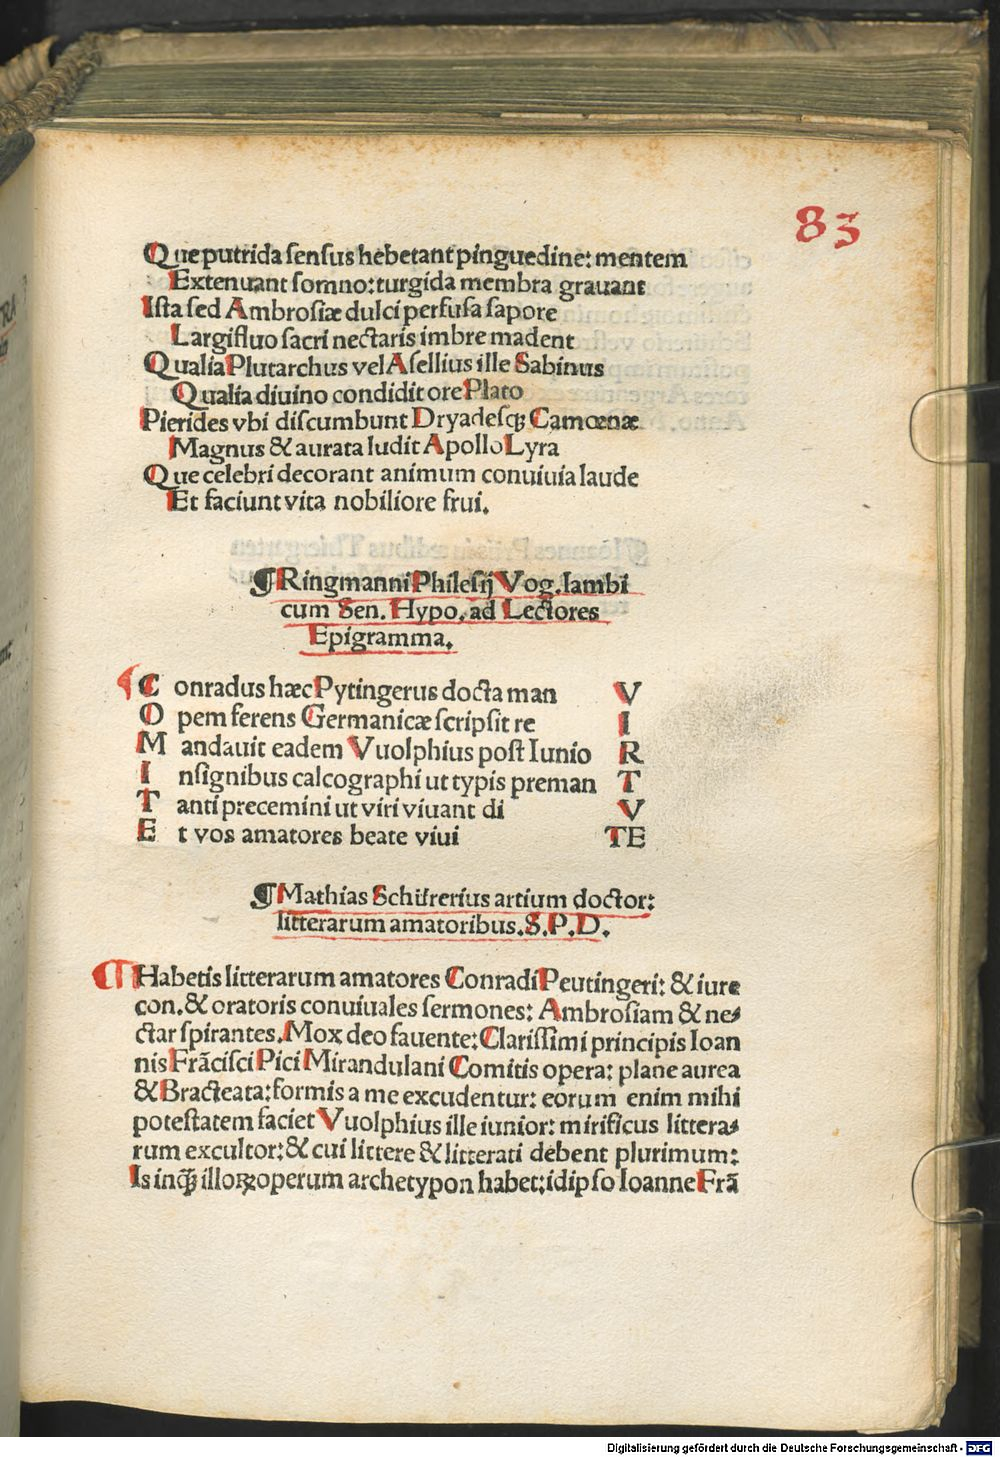 83
Que putrida sensus hebetant pinguedine: mentem
Extenuant somno: turgida membra grauant
Ista sed Ambrosiæ dulci perfusa sapore
Largifluo sacri nectaris imbre madent
Qualia Plutarchus vel Asellius ille Sabinus
Qualia diuino condidit ore Plato
Pierides vbi discumbunt Dryadesqꝫ Camœnæ
Magnus & aurata ludit Apollo Lyra
Que celebri decorant animum conuiuia laude
Et faciunt vita nobiliore frui.
¶ Ringmanni Philesij Vog. Iambi
cum Sen. Hypo. ad Lectores
Epigramma.
C onradus hæc Pytingerus docta man V
O pem ferens Germanicæ scripsit re I
M andauit eadem Vuolphius post Iunio R
I nsignibus calcographi ut typis preman T
T anti precemini ut viri viuant di V
E t vos amatores beate viui TE
¶ Mathias Schürerius artium doctor:
litterarum amatoribus. S. P. D.
Habetis litterarum amatores Conradi Peutingeri: & iure
con. & oratoris conuiuales sermones: Ambrosiam & ne-
ctar spirantes. Mox deo fauente: Clarissimi principis Ioan
nis Frãcisci Pici Mirandulani Comitis opera: plane aurea
& Bracteata: formis a me excudentur: eorum enim mihi
potestatem faciet Vuolphius ille iunior: mirificus littera-
rum excultor: & cui littere & litterati debent plurimum:
Is inqꝫ illoꝝ operum archetypon habet: id ipso Ioanne Frã
Digitalisierung gefördert durch die Deutsche Forschungsgemeinschaft - DFG